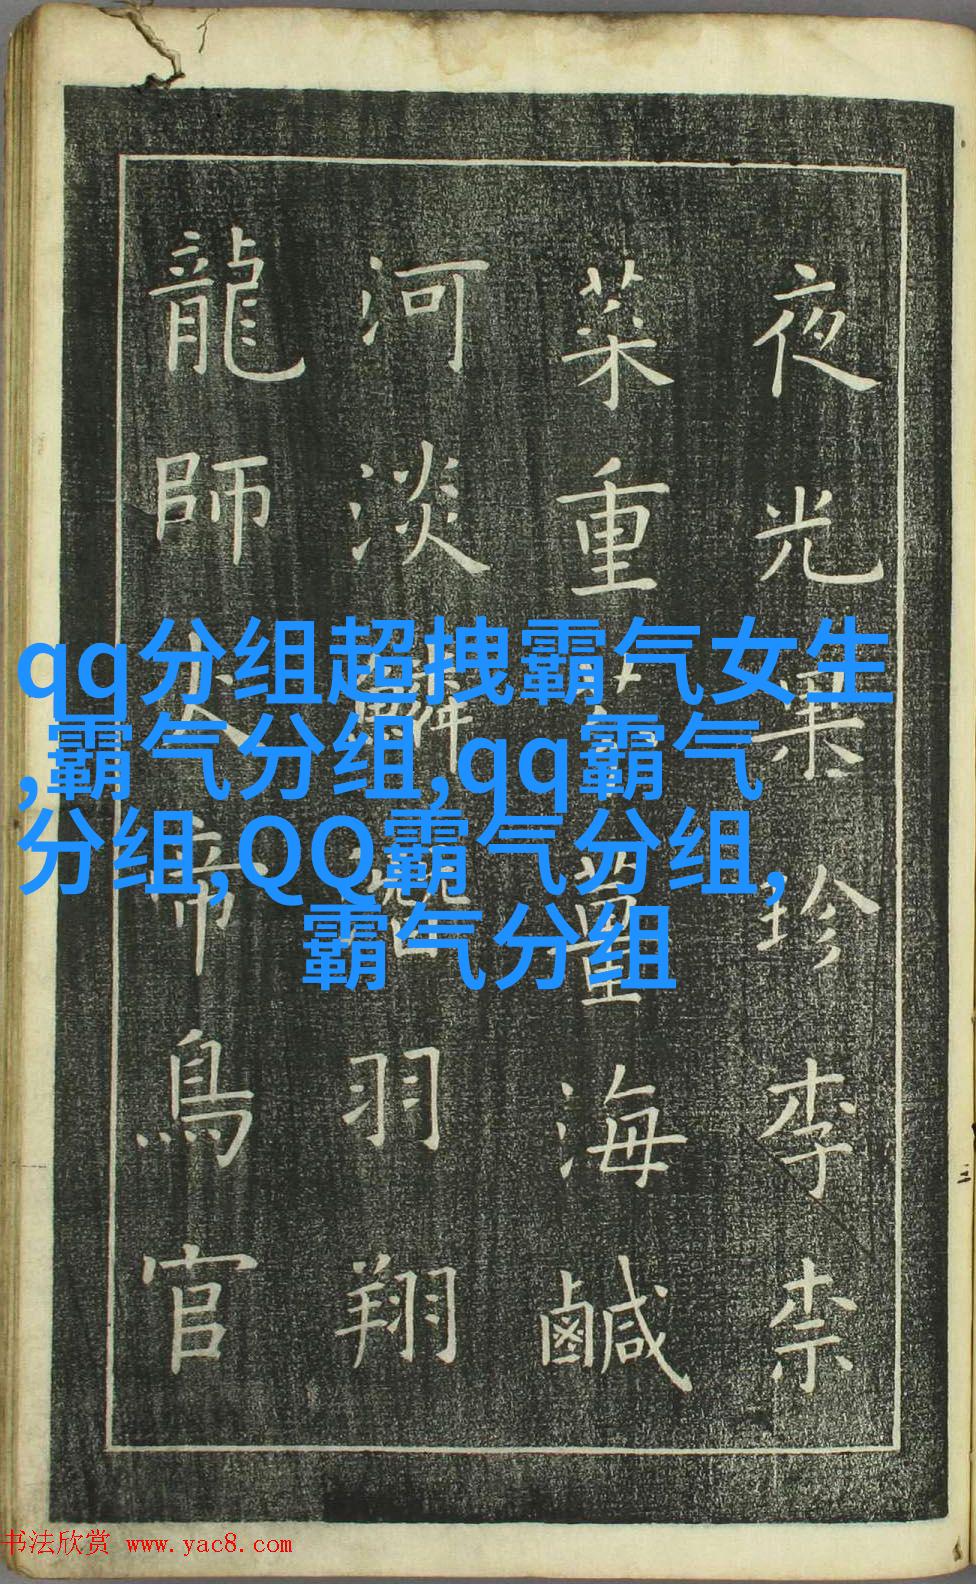 夜光果珍李柰
菜重薑海鹹
河淡鱗羽翔
龍師火帝鳥官
qq分组超拽霸气女生
,霸气分组,qq霸气
分组,QQ霸气分组,
霸气分组
书法欣赏 www.yac8.com